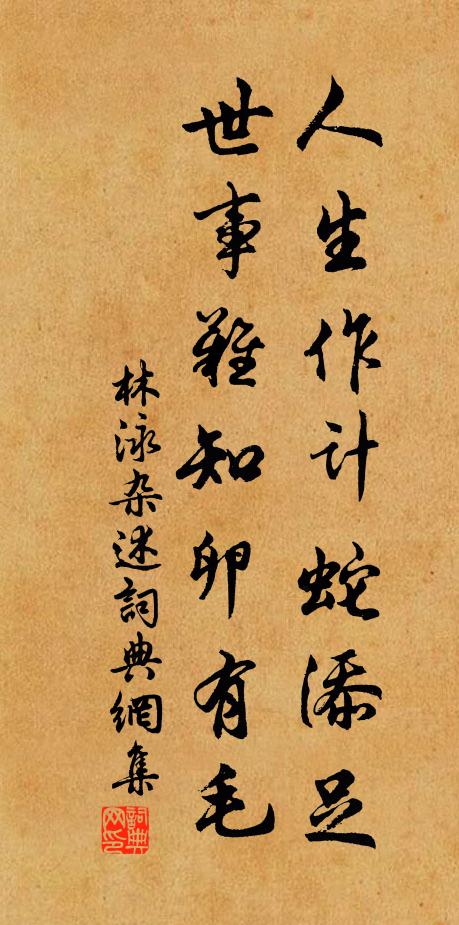 人生作计蛇添足
世事难知卵有毛
林泳杂述詞典網集
詞典网印